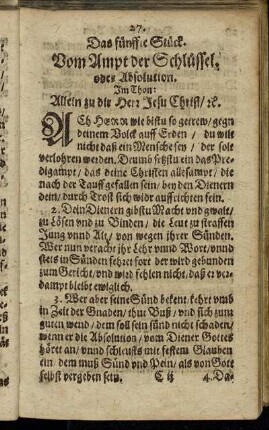 27.
Das fünffte Stück.
Vom Ampt der Schlüssel,
oder Absolution.
Im Thon:
Allein zu dir Herr Jesu Christ/ ꝛc.
ACh HERR wie bistu so getrew/ gegn
deinem Volck auff Erden / du wilt
nicht daß ein Mensche sey / der solt
verlohren werden, Drumb setzstu ein das Pre-
digampt/ daß deine Christen allesampt/ die
nach der Tauff gefallen sein/ bey den Dienern
dein/ durch Trost sich widr auffrichten fein.
2. Dein Dienern gibstu Macht und gwalt/
zu Lösen vnd zu Binden/ die Leut zu straffen
Jung vnnd Alt, von wegen ihrer Sünden,
Wer nun veracht ihr Lehr vnnd Wort/ vnnd
stets in Sünden fehret fort der wird gebunden
zum Gericht/ vnd wird fehlen nicht/ daß er ver-
dampt bleibt ewiglich.
3. Wer aber seine Sünd bekent, kehrt vmb
in Zeit der Gnaden/ thut Buß/ vnd sich zum
guten wend/ dem soll sein sünd nicht schaden/
wenn er die Absolution/ vom Diener Gottes
höret an/ vnnd schleusts mit festem Glauben
ein dem muß Sünd vnd Pein/ als von Gott
selbst vergeben sein. C ij 4. Da-